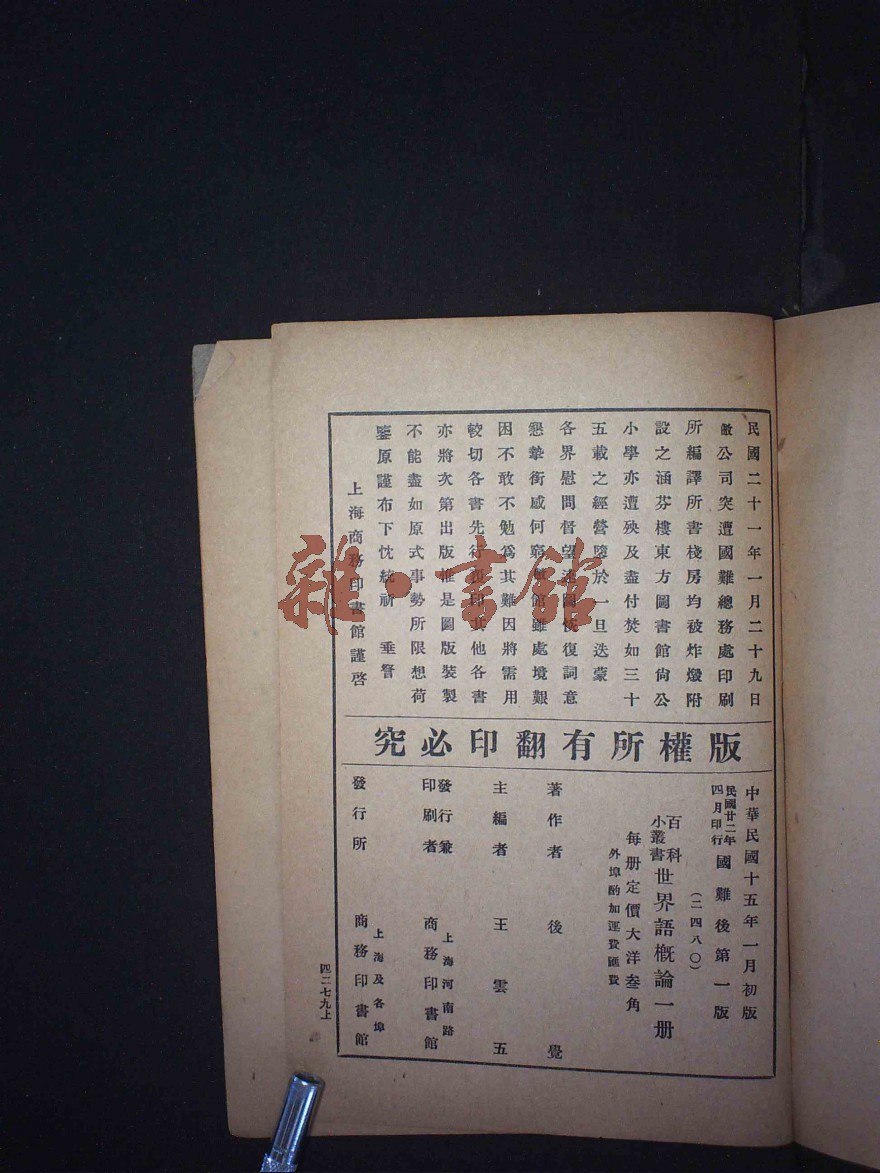 民國二十一年一月二十九日
敝公司突遭國難總務處印刷
所編譯所書棧房均被炸燬附
設之涵芬樓東方圖書館尙公
小學亦遭殃及盡付焚如三十
五載之經營隳於一旦迭蒙
各界慰問督望速圖恢復詞意
懇摯銜感何窮敝館雖處境艱
困不敢不勉爲其難因將需用
較切各書先行覆印其他各書
亦將次第出版惟是圖版裝製
不能盡如原式事勢所限想荷
鑒原謹布下忱統祈 垂詧
上海商務印書館謹啓
版權所有翻印必究
中華民國十五年一月初版
民國廿二年四月印行 國難後第一版
(二四八〇)
百科小叢書 世界語概論一册
每册定價大洋叁角
外埠酌加運費匯費
著作者 後覺
主編者 王雲五
發行兼印刷者 上海河南路 商務印書館
發行所 上海及各埠 商務印書館
四二七九上
雜·書館